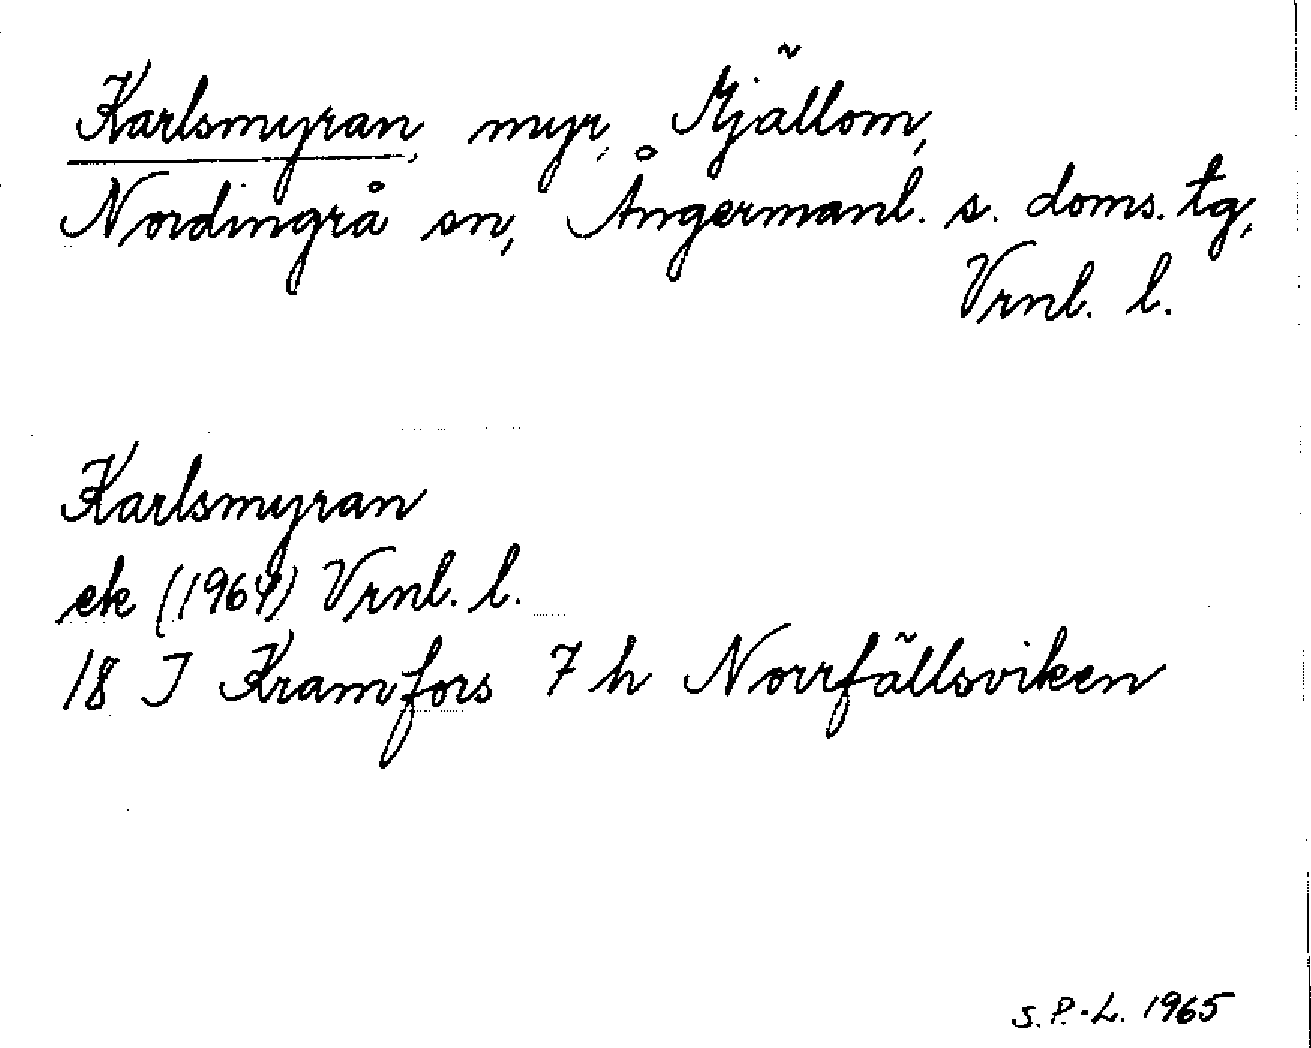 Karlsmyran, myr, Mjällom,
Nordingrå sn, Ångermanl. s. doms. tg,
Vrnl. l.
Karlsmyran
ek (1964) Vrnl. l.
18 I Kramfors 7 h Norrfällsviken
S. P.-L. 1965